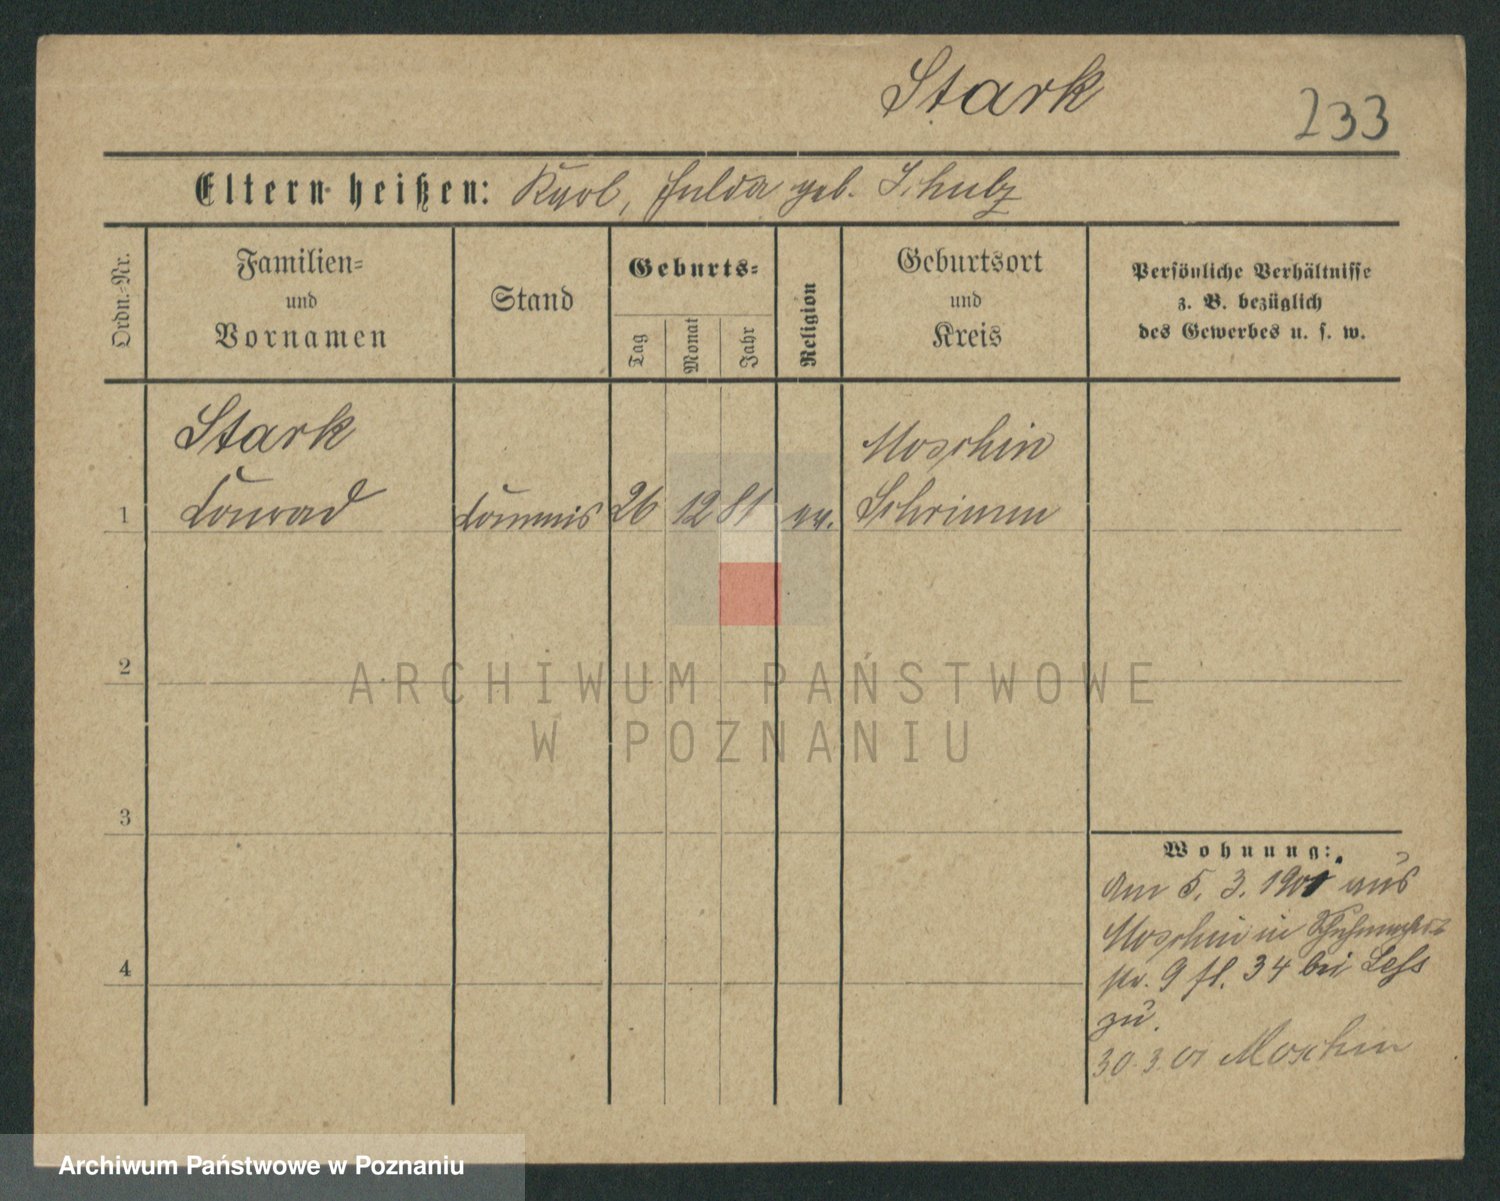 Stark
233
Eltern heißen: Karl, Hulda geb. Schulz
Ordn.-Nr.
Familien-
und
Vornamen
Stand
Geburts-
Tag
Monat
Jahr
Religion
Geburtsort
und
Kreis
Persönliche Verhältnisse
z. B. bezüglich
des Gewerbes u. s. w.
Stark
Conrad
1
Commis
26
12
81
ev.
Moschin
Schrimm
2
3
4
Wohnung:
Am 5. 3. 1901 aus
Moschin in
str. 9 fl. 34 bei
zu.
30.3.01 Moschin
ARCHIWUM PAŃSTWOWE
W POZNANIU
Archiwum Państwowe w Poznaniu